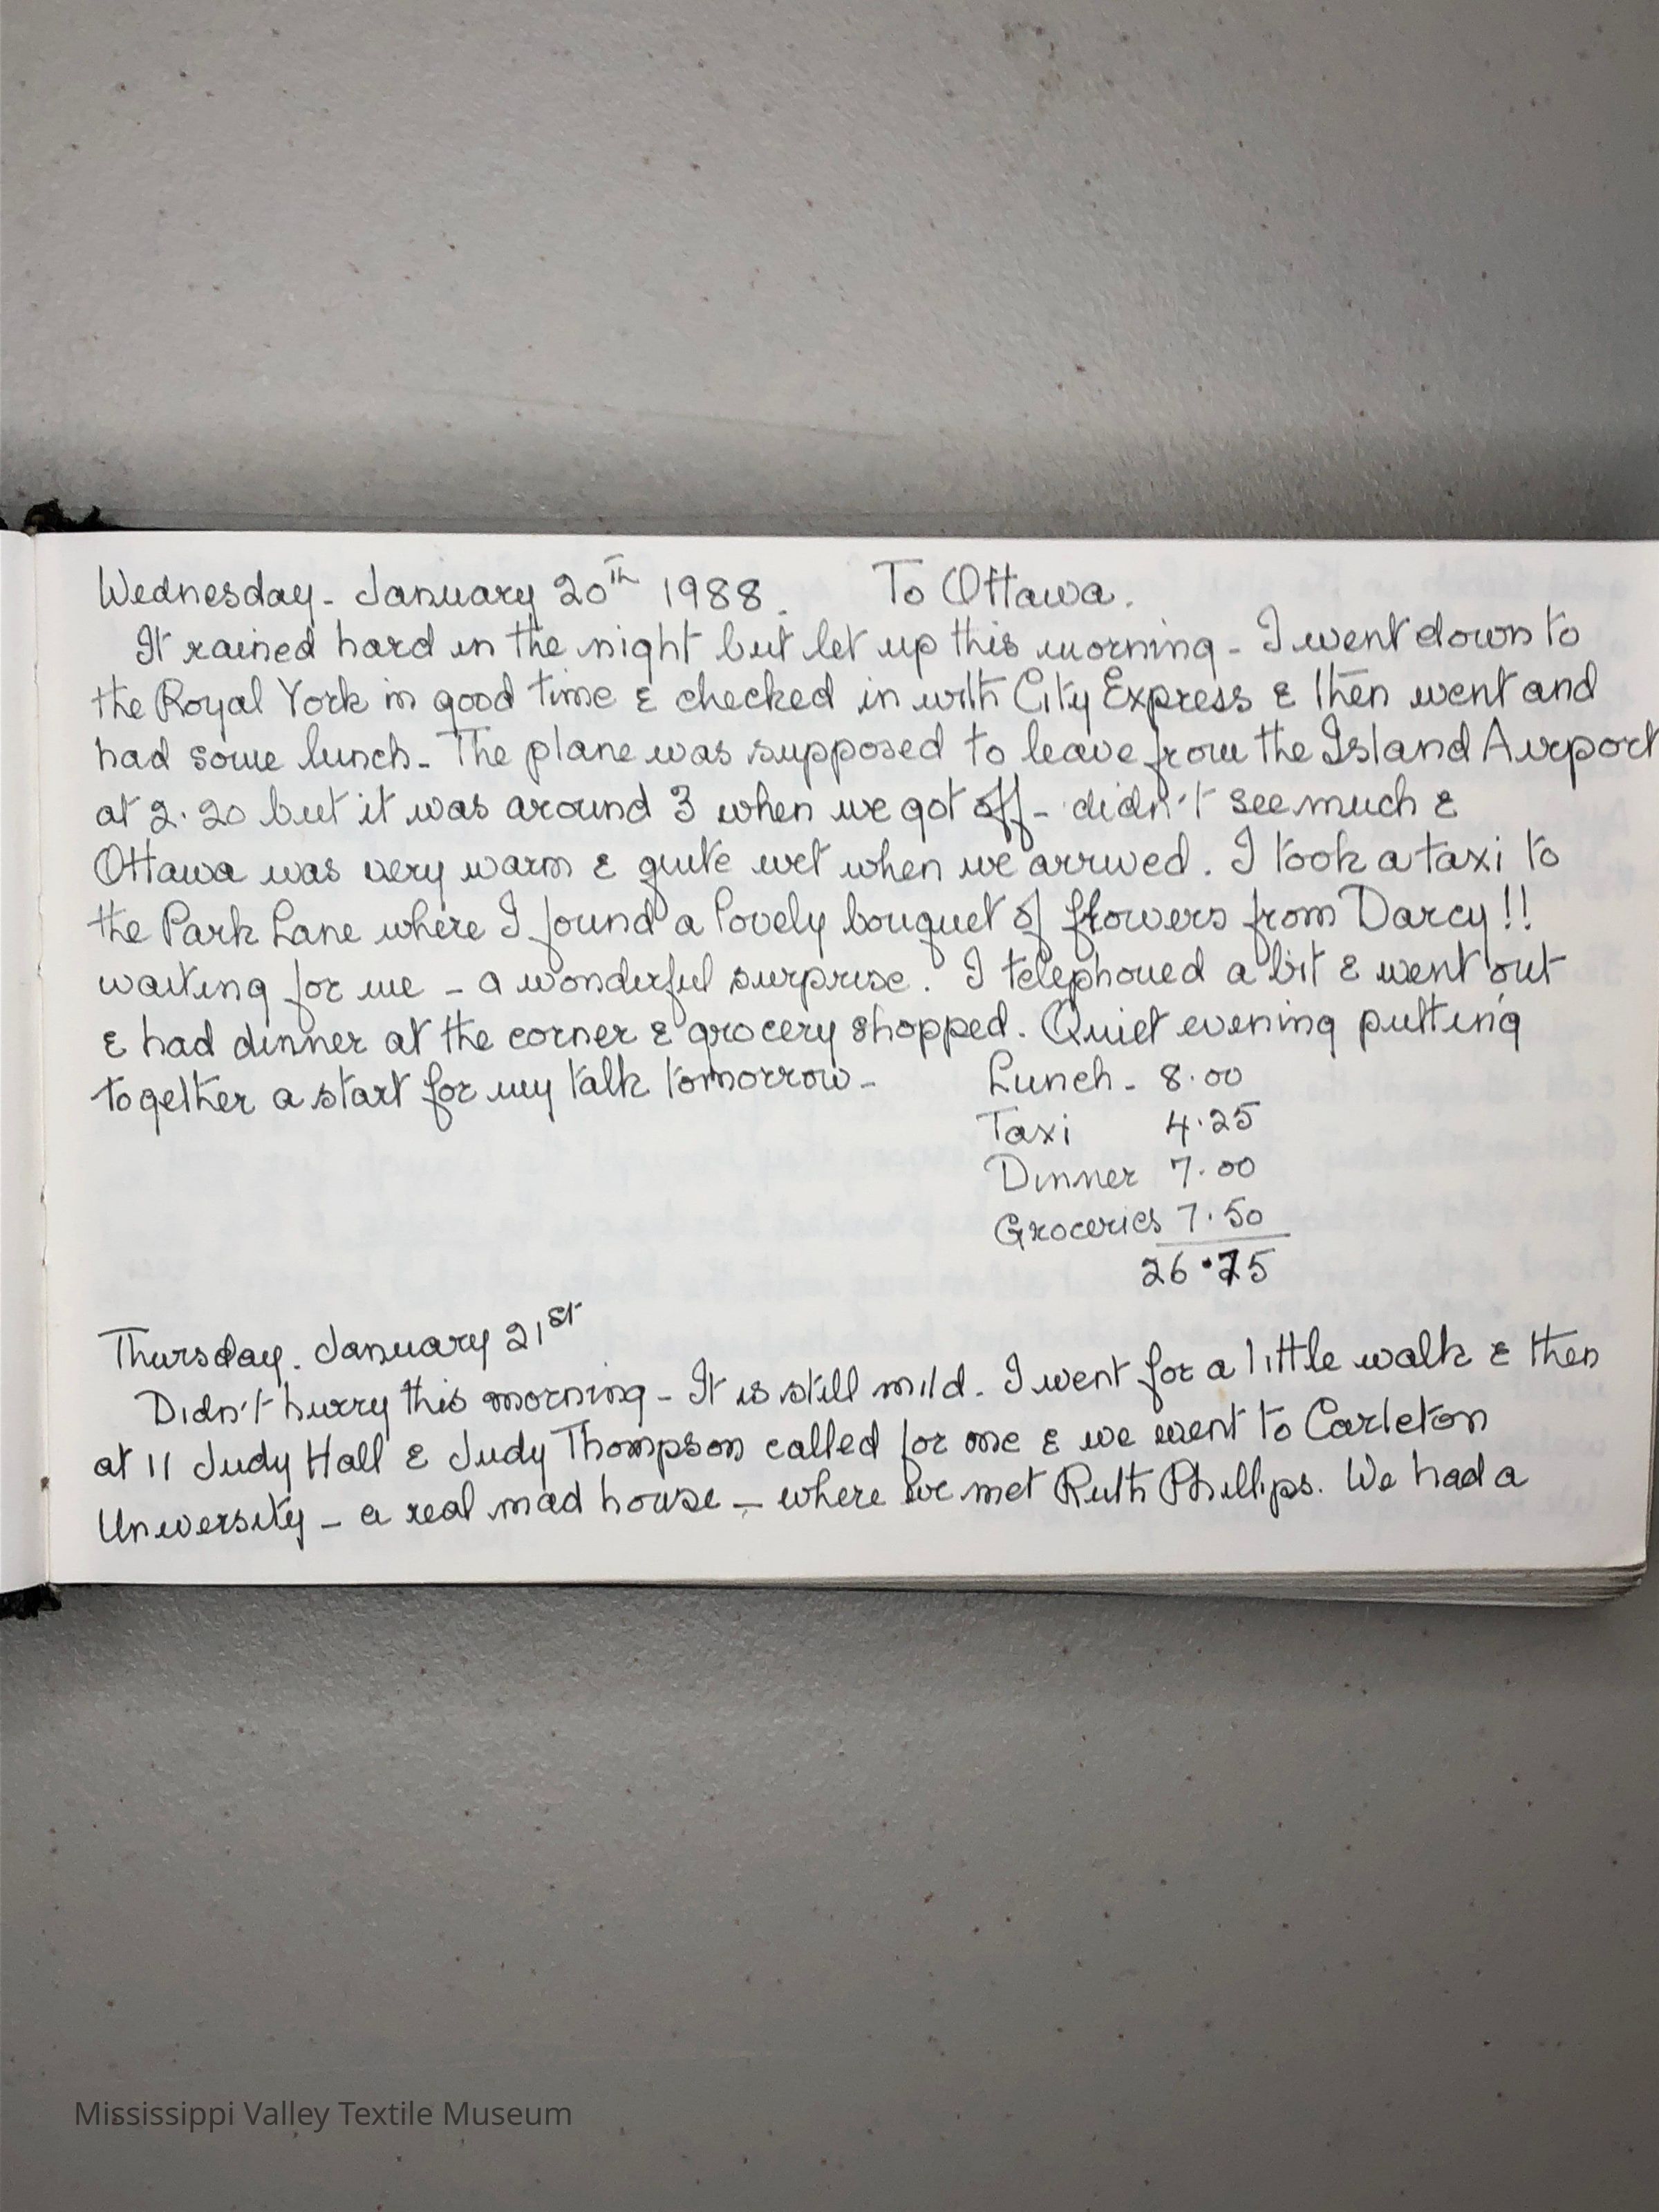 Wednesday - January 20th 1988. To Ottawa.
It rained hard in the night but let up this morning - I went down to
the Royal York in good time & checked in with City Express & then went and
had some lunch - The plane was supposed to leave from the Island Airport
at 2.20 but it was around 3 when we got off - didn't see much &
Ottawa was very warm & quite wet when we arrived. I took a taxi to
the Park Lane where I found a lovely bouquet of flowers from Darcy!!
waiting for me - a wonderful surprise. I telephoned a bit & went out
& had dinner at the corner & grocery shopped. Quiet evening putting
together a start for my talk tomorrow -
Lunch - 8.00
Taxi 4.25
Dinner 7.00
Groceries 7.50
26.75
Thursday. January 21st
Didn't hurry this morning - It is still mild. I went for a little walk & then
at 11 Judy Hall & Judy Thompson called for me & we went to Carleton
University - a real mad house - where we met Ruth Phillips. We had a
Mississippi Valley Textile Museum